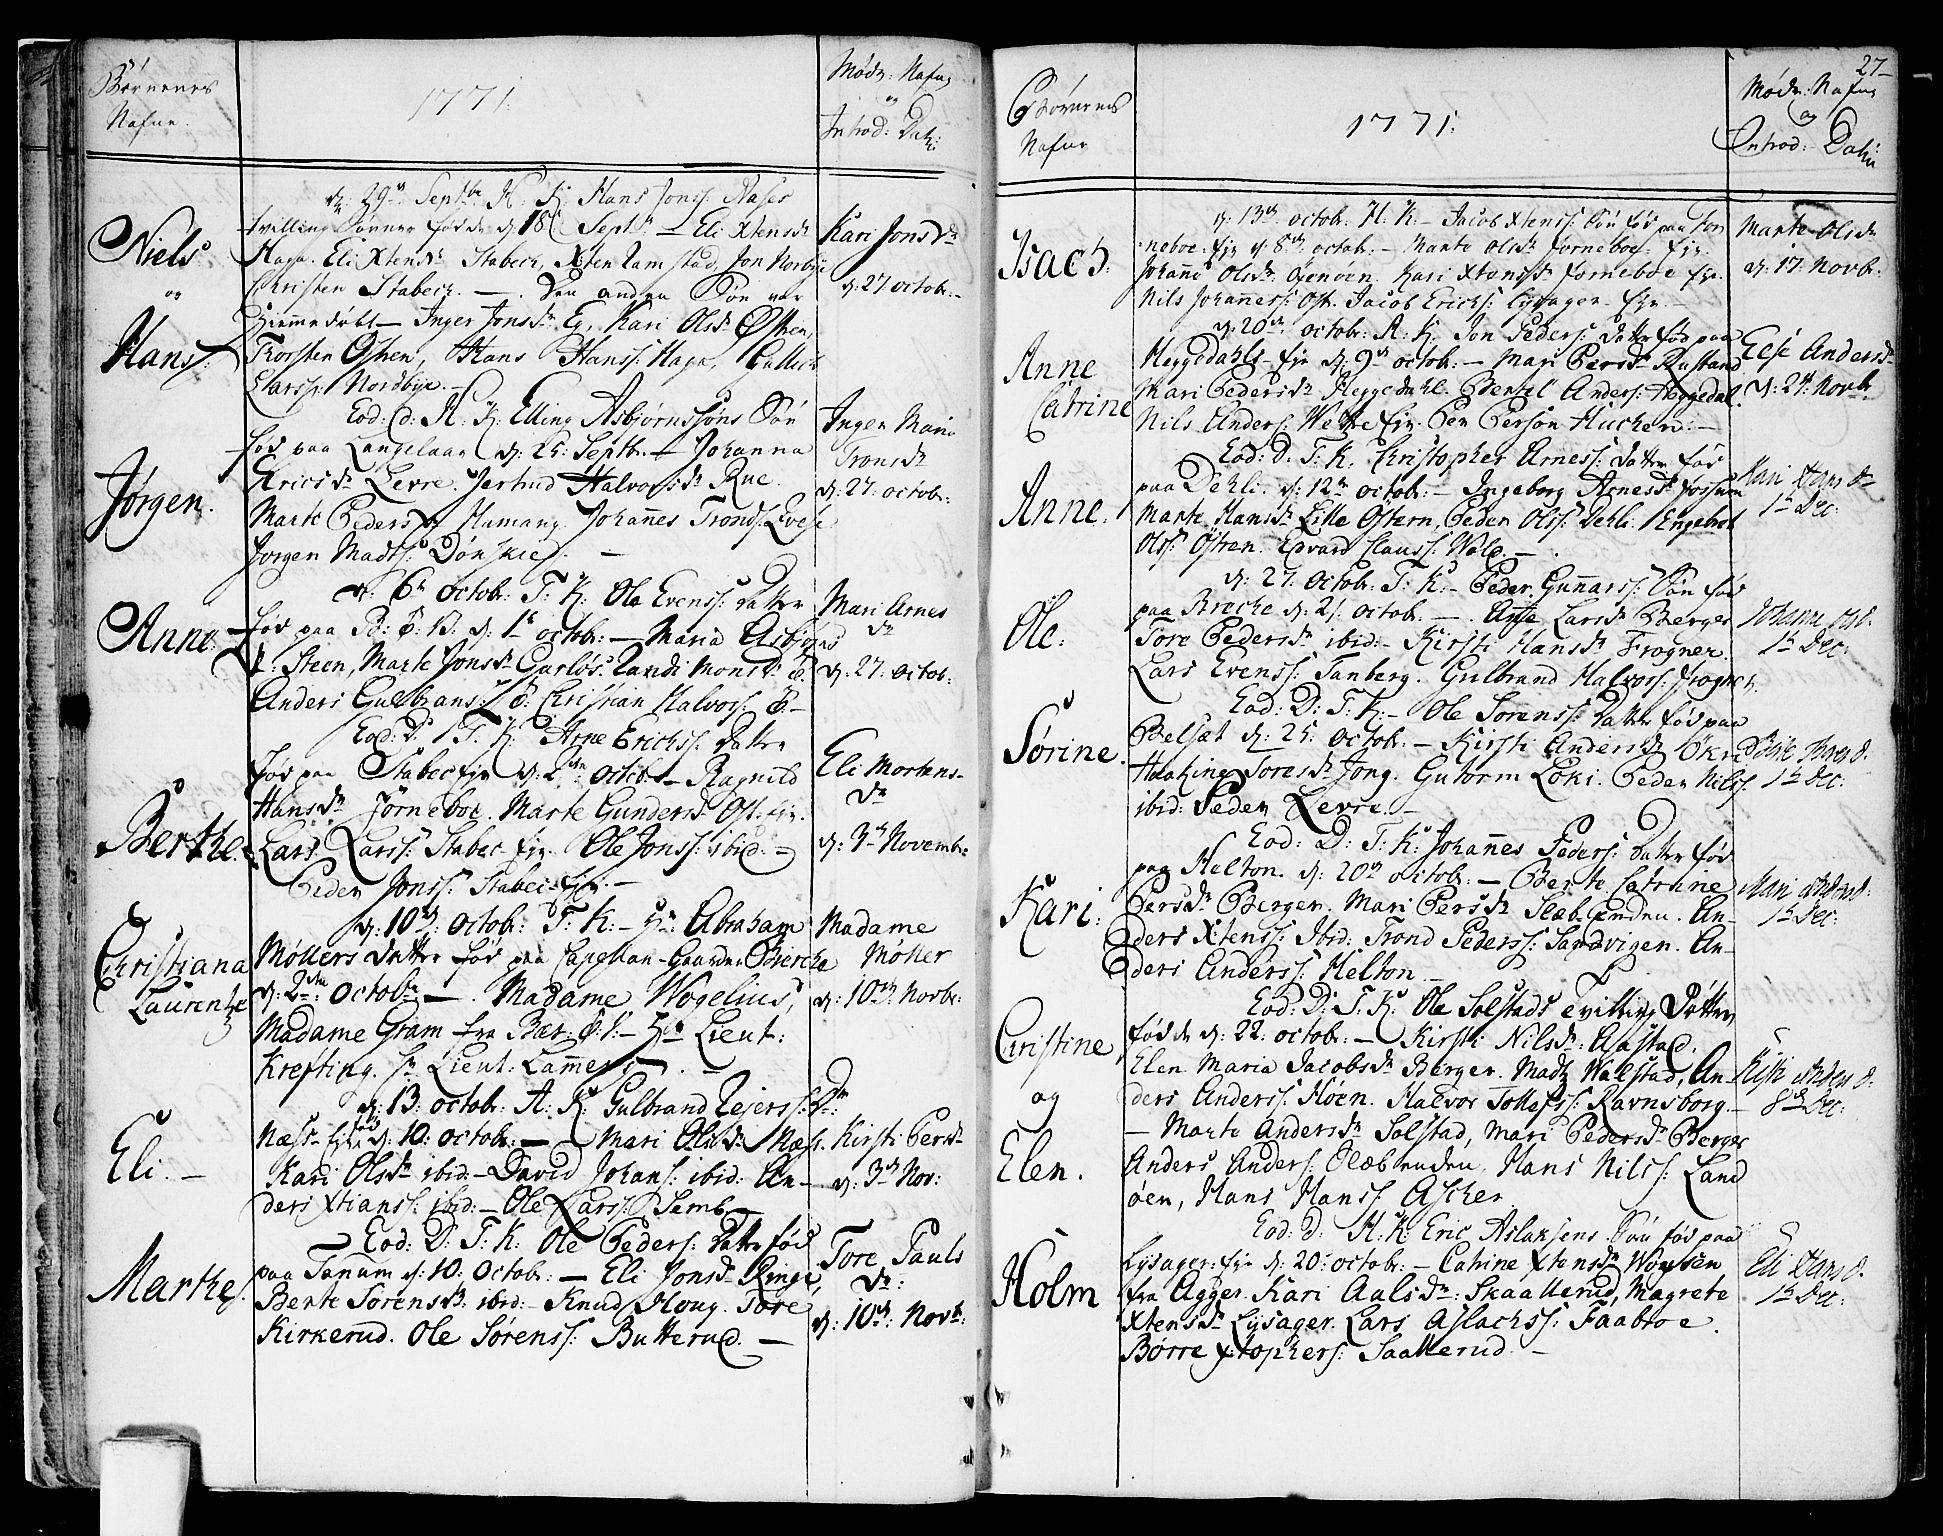 Børnenes
Nafne.
1771.
Mødr: Nafne
og
Introd: Dato:
Niels
og
Hans.
d: 29de Septbr H. K. Hans Jons: Hages
tvilling Sønner fød d: 18 Septb: — Eli Xtensdr
Haga. Eli Xtensdr Stabeck, Xten Ramstad, Jon Norbye
Christen Stabeck. — Den anden Søn var
Hiemmedøbt — Inger Jonsdr Eg, Kari Olsdr Østern,
Torsten Østern, Hans Hanss: Haga, Gulbr
Larss: Nordbye. —
Kari Jonsdr
d: 27 octobr.
Jørgen.
Eod: d: H. K: Elling Asbjørnssøns Søn
fød paa Langelaar d: 25 Septbr. — Johanna
Ericsdr Levre. Jertrud Halvorsdr Rue.
Marte Pedersdr Hamang. Johannes Tronds: Evje
Jorgen Madts: Dønskie. —
Inger Maria
Tronsdr
d: 27: octobr:
Anne.
d: 6te octobr: T. K: Ole Evenss: datter
fød paa B: V: d: 1te octobr: — Maria Asbjørns
d: Steen, Marte Jonsdr Garløs. Randi Monsdr
Anders Gulbrans: Christian Halvors:
Mari Arnes
dr
d: 27 octobr:
Berthe.
Eod: D: T. K: Arne Erichss: datter
fød paa Stabec eje d: 2den octobr — Ragnild
Hansdr Jørneboe. Marte Gundersdr Ost. eje.
Lars Larss: Stabec eje. Ole Jonss: ibid: —
Peder Jonss: Stabec eje. —
Eli Mortens-
dr
d: 3de Novembr
Christiana
Laurentze
d: 10de: octobr: T. K: — Hr: Abraham
Møllers datter fød paa Capellan-Gaarden Bierche
d: 2den: octobr — . Madame Wogelius,
Madame Gram fra Bær: V: — Hr Lieut:
Krefting. Hr Lieut: Lammers. —
Madame
Møller
d: 10de: Novbr:
Eli. —
d: 13 octobr: A. K: Gulbrand Rejerss: dr:
Næss-eje fød d: 10: octobr: — Mari Olsdr Næss.
Kari Olsdr ibid — David Johans: ibid: An-
ders Xtianss: ibid: — Ole Larss: Semb
Kirsti Persdr
d: 3de Nov:
Marthe.
Eod: D: T. K: Ole Peders: datter fød
paa Tanum d: 10: Octobr: — Eli Jonsdr Ringi,
Berte Sørensdr ibid: — Knud Houg. Tore
Kirkerud. Ole Sørenss: Butterud. —
Tore Pauls
dr:
d: 10de: Novbr:
27
Børnenes
Nafne
1771.
Mødr: Nafne
og
Introd: Dato
Isach.
d: 13de octobr. H. K. — Jacob Xtenss: Søn fød paa Jor
neboe. eje d: 8de octobr. — Marte Olsdr Jorneboe. eje.
Johanne Olsdr Ovenøen. Kari Xtensdr Jorneboe eje.
Nils Johaness: Ost. Jacob Erichs: Lysager. eje. —
Marte Olsdr
d: 17. Novb.
Anne
Catrine
d: 20de octobr: A. K. Jon Peders: datter fød paa
Heggedahls-eje d: 9de octob: — Mari Persdr Rustand
Mari Pedersdr Heggedahl. Bertel Anders: Heggedal.
Nils Anders: Wette eje. Per Person Hucken: —
Else Andersdr
d: 24: Novbr.
Anne.
Eod: D. T. K. Christopher Arness: datter fød
paa Dehli. d: 12te octobr: — Ingeborg Arnesdr Fossum
Marte Hansdr Lille Ostern, Peder Olss: Dehli. Engebret
Olss: Østren. Edvard Clauss: Wold. —
Kari Hans dr
1te Dec:
Ole:
d: 27. Octobr: T: K: — Peder Gunnars: Søn fød
paa Breche d: 21. octobr. — . Anne Larsdr Berger
Tore Pedersdr ibid: — Kirsti Hansdr Frogner
Lars Evenss: Tanberg. Gulbrand Halvors: Frogner.
Johanne Ols d.
1te Dec:
Sørine.
Eod: D: T. K: — Ole Sørenss: datter fød paa
Belset d: 25: octobr: — Kirsti Andersdr Økri
Haaking Toresdr Jong. Gutorm Løki. Peder Nils:
ibid: Peder Levre. —
1te Dec:
Kari:
Eod: D. T. K: Johannes Peders: datter fød
paa Helton. d: 20de octobr: — Berte Catrine
Persdr Berger. Mari Persdr Slæbenden. An-
ders Xtenss: Ibid: Trond Pederss: Sandvigen. An-
ders Anderss: Helton —
Mari d:
1te Dec:
Christine,
og
Elen.
Eod: D: T. K: Ole Solstads tvilling Døttre
fød d: 22. octobr: — Kirsti Nilsdr: Aastad.
Elen Maria Jacobsdr Berger. Madtz Walstad, An-
ders Anderss: Høen. Halvor Tollefss: Ravnsborg —
— Marte Andersdr Solstad, Mari Pedersdr Berger
Anders Anders: Slæbenden, Hans Nilss: Land
øen, Hans Hanss: Ascher
Kisti Anders d.
8de Dec:
Holm
Eod: d: H. K: Eric Aslaksens Søn fød paa
Lysager: eje d: 20: octobr — Catrine Xtensdr Woxsen
fra Agger. Kari Aalsdr: Skaallerud, Magrete
Xtensdr Lysager. Lars Aslachss: Faabroe.
Børre Xtophers: Saatterud. —
Eli Hans d.
1te Dec: